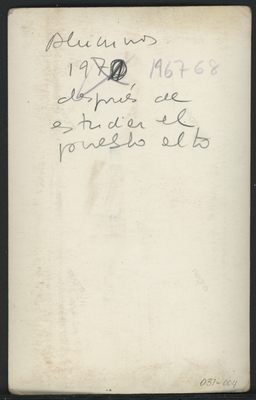 Alumnos
1970 1967-68
después de
estudiar el
pueblo alto
DBI-004